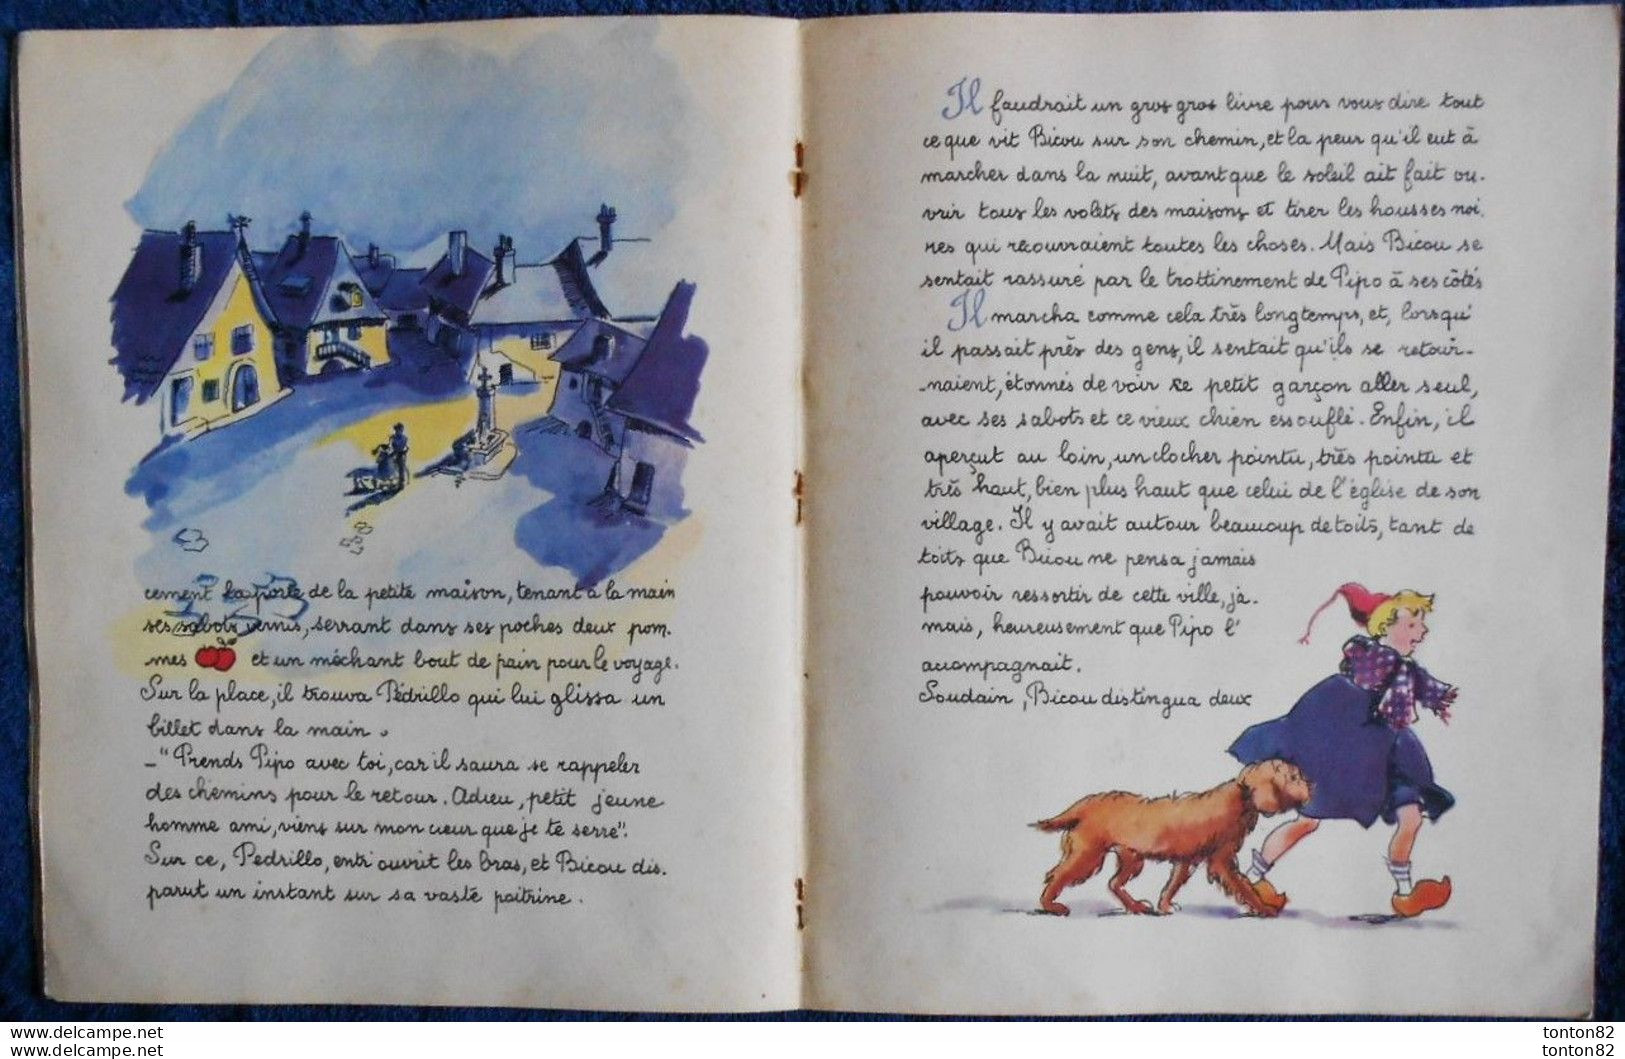 cement la porte de la petite maison, tenant à la main
ses sabots vernis, serrant dans ses poches deux pom.
mes et un méchant bout de pain pour le voyage.
Sur la place, il trouva Pédrillo qui lui glissa un
billet dans la main.
–"Prends Pipo avec toi, car il saura se rappeler
des chemins pour le retour. Adieu, petit jeune
homme ami, viens sur mon cœur que je te serre".
Sur ce, Pedrillo, entr'ouvrit les bras, et Bicou dis.
parut un instant sur sa vaste poitrine.
Il faudrait un gros gros livre pour vous dire tout
ce que vit Bicou sur son chemin, et la peur qu'il eut à
marcher dans la nuit, avant que le soleil ait fait ou.
vrir tous les volets des maisons et tirer les housses noi.
res qui recouvraient toutes les choses. Mais Bicou se
sentait rassuré par le trottinement de Pipo à ses côtés
Il marcha comme cela très longtemps, et, lorsqu'
il passait près des gens, il sentait qu'ils se retour-
-naient, étonnés de voir ce petit garçon aller seul,
avec ses sabots et ce vieux chien essoufflé. Enfin, il
aperçut au loin, un clocher pointu, très pointu et
très haut, bien plus haut que celui de l'église de son
village. Il y avait autour beaucoup de toits, tant de
toits que Bicou ne pensa jamais
pouvoir ressortir de cette ville, ja.
mais, heureusement que Pipo l'
accompagnait.
Soudain, Bicou distingua deux
www.delcampe.net
www.delcampe.net
tonton82
tonton82